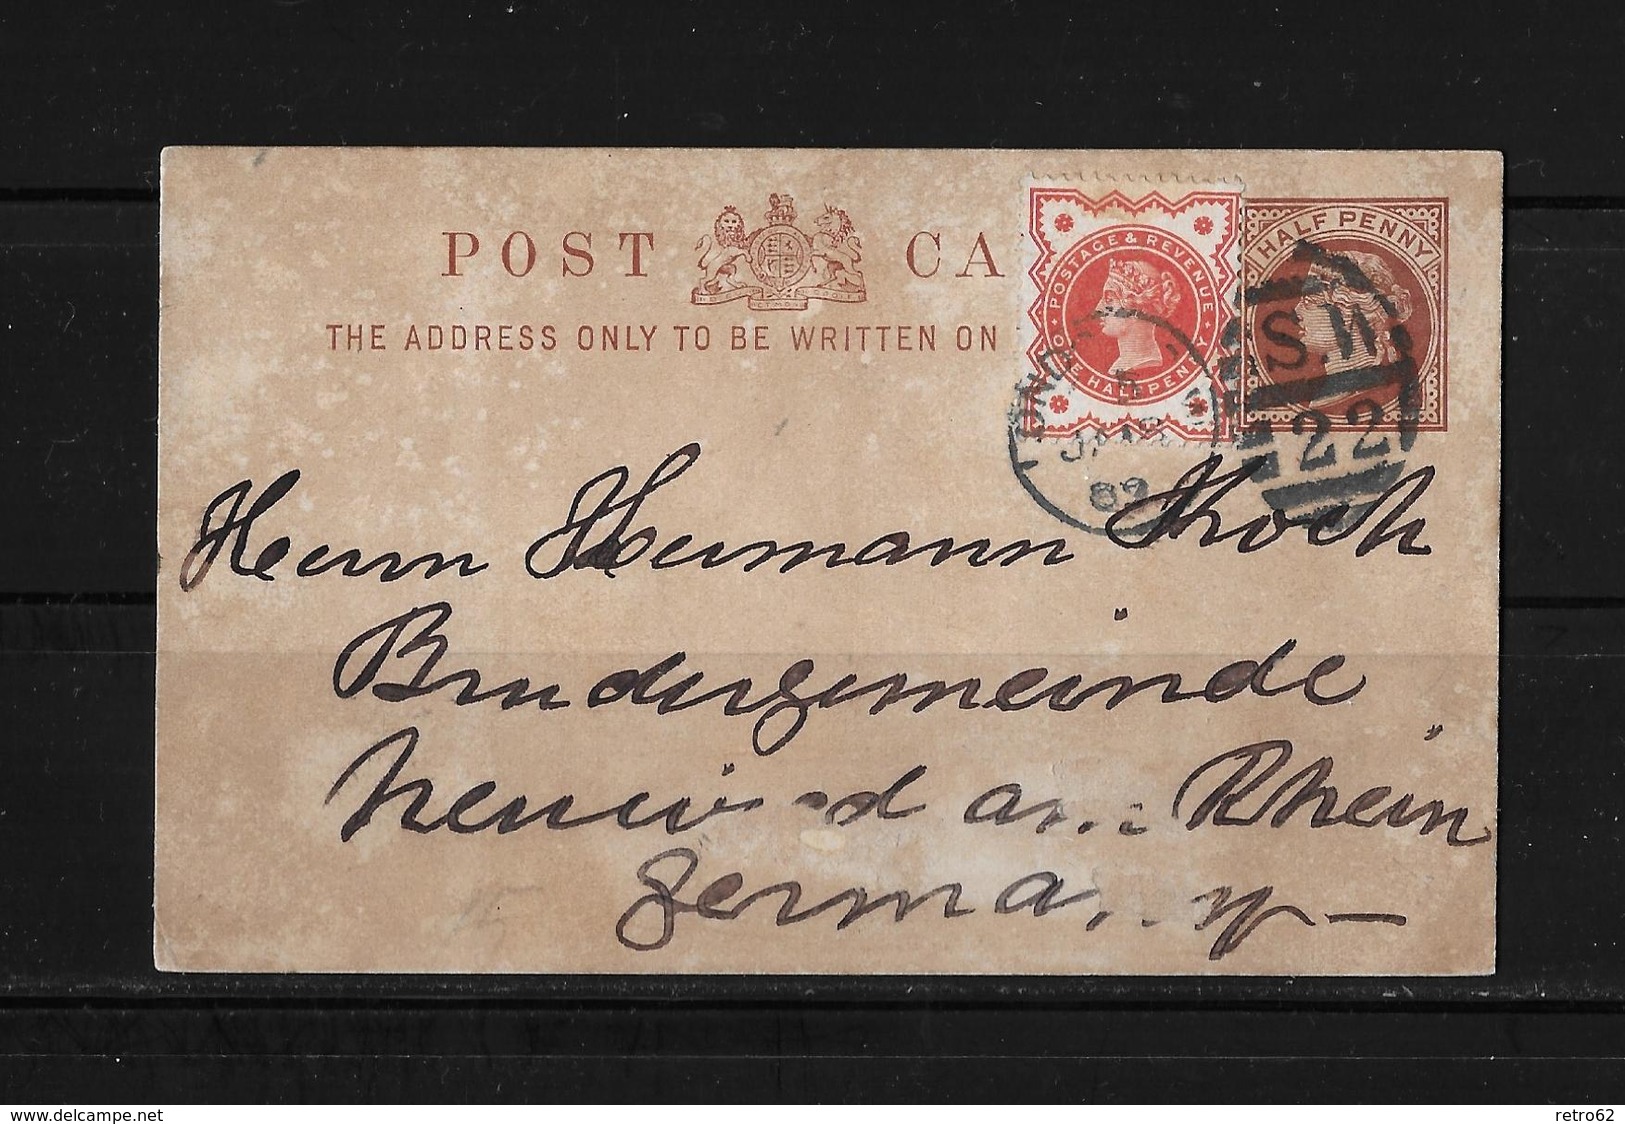 POST CA
THE ADDRESS ONLY TO BE WRITTEN ON
POSTAGE & REVENUE
ONE HALFPENNY
HALFPENNY
S.W.
22
LONDON
5
JA
89
Herrn Hermann Koch
Brudergemeinde
Neuwied am Rhein
Germany
delcampe.net
retro62